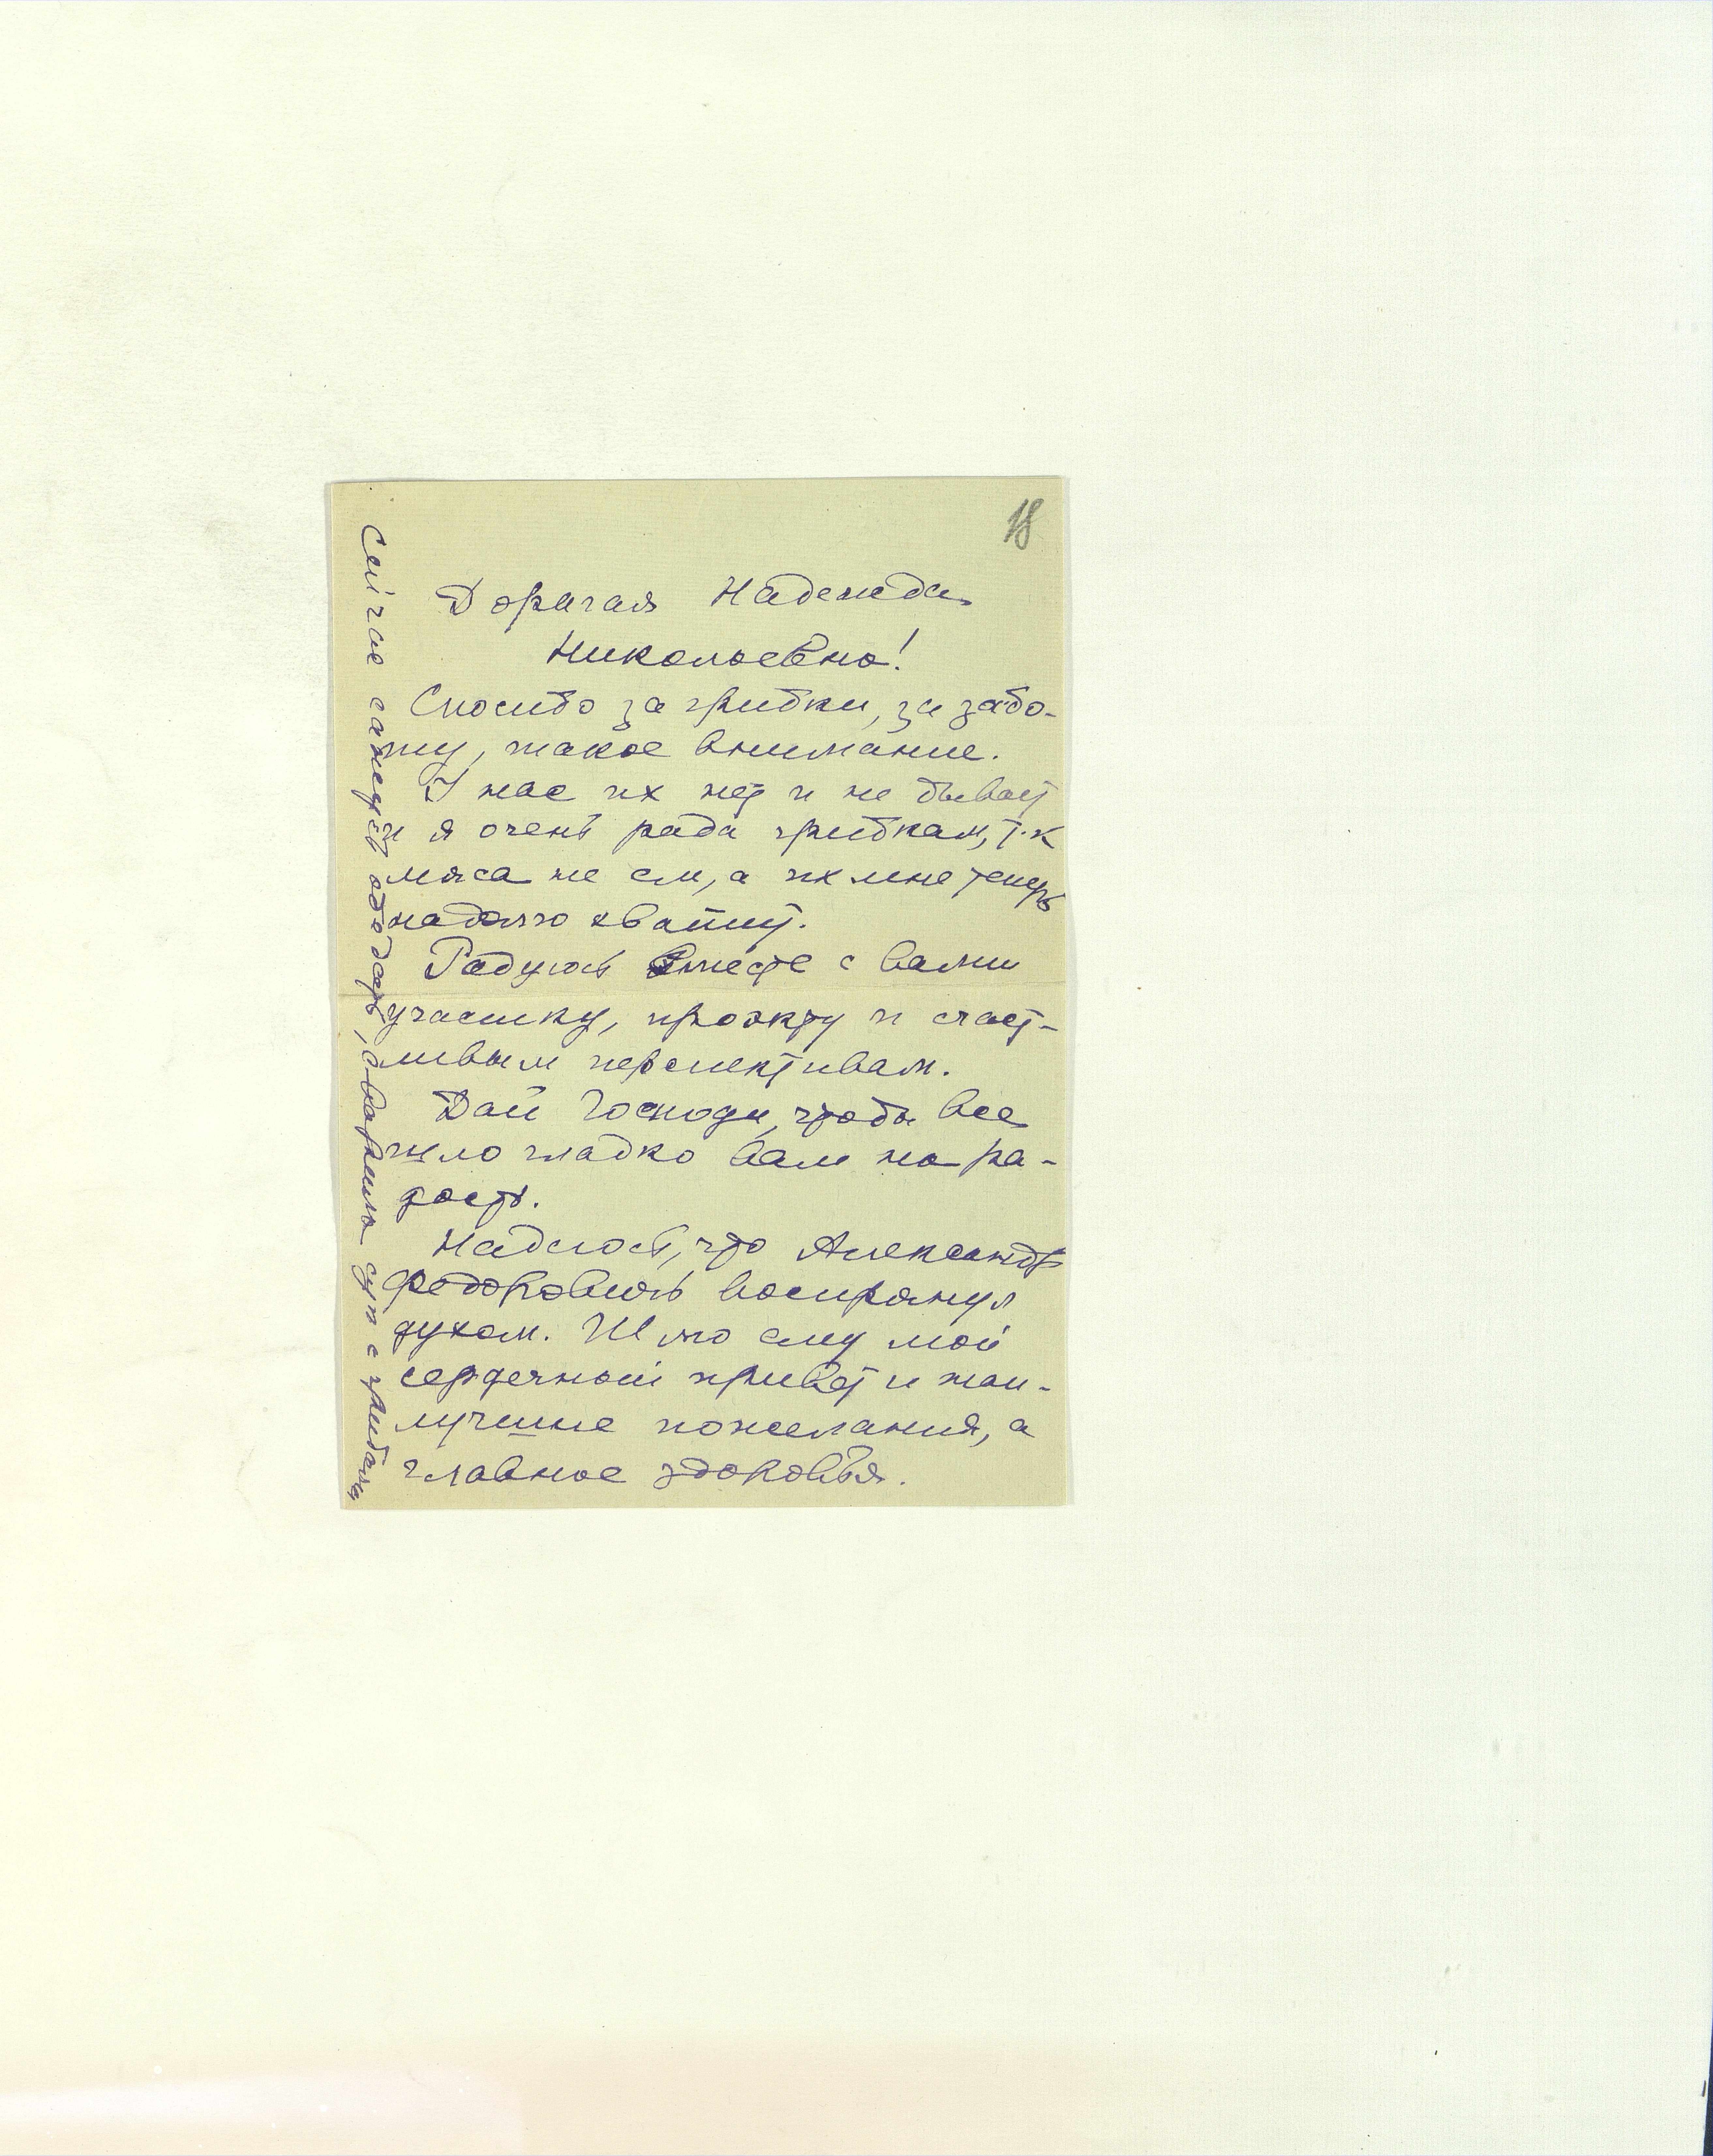 18
Дорогая Надежда
Николаевна!
Спасибо за грибки, за забо-
ту, такое внимание.
У нас их нет и не бывает
и я очень рада грибкам, т.к
мяса не ем, а их мне теперь
надолго хватит.
Радуюсь вместе с вами
участку, проэкту и счаст-
ливым перспективам.
Дай Господи, чтобы все
шло гладко вам на ра-
дость.
Надеюсь, что Александр
Федорович воспрянул
духом. Шлю ему мой
сердечный привет и наи-
лучшие пожелания, а
главное здоровья.
Сейчас сажусь обедать, сварила суп с грибами